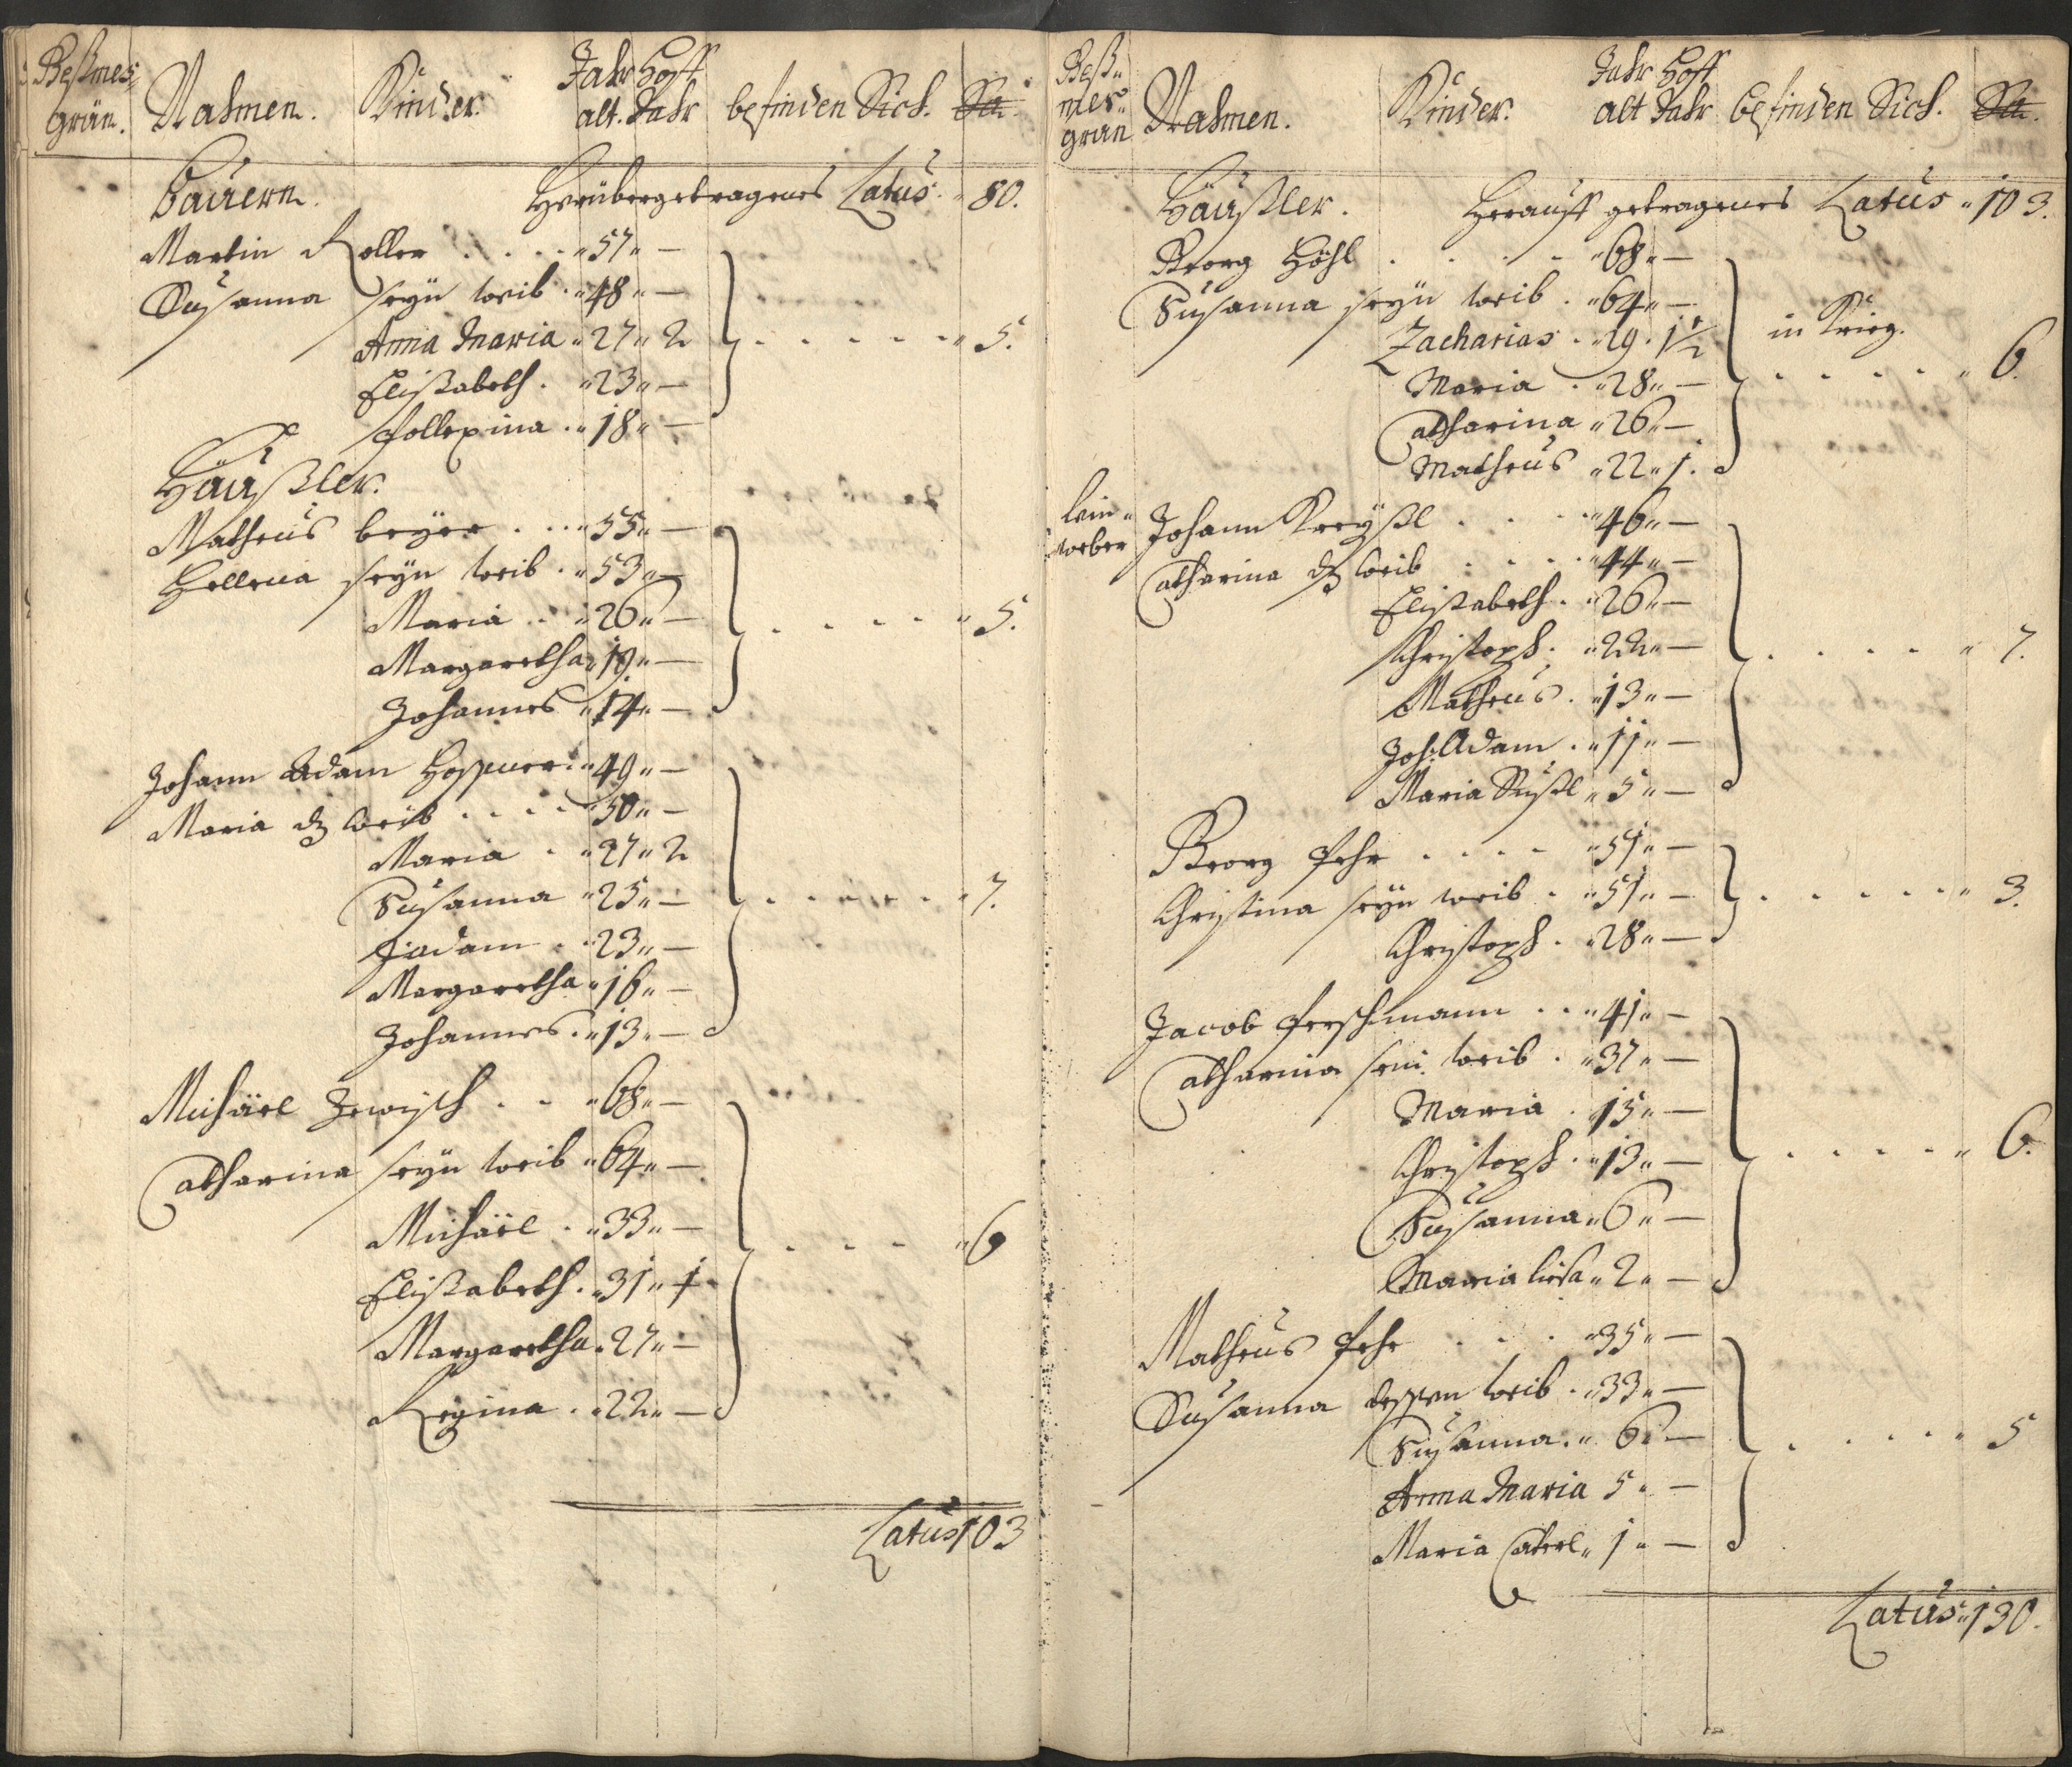 Beßmes
grün.
Nahmen.
Kinder.
Jahr alt.
Hoff Jahr
befinden Sich.
Sa.
Bauern.
Herübergetragenes Latus. 80.
Martin Koller . . . . 57 —
Susanna seyn weib . 48 —
Anna Maria 27 2 . . . . . . 5.
Elißabeth . 23 —
18 —
Häußler.
Matheus beyer . . . 55 —
Hellena seyn weib . 53 —
Maria . . 26 — . . . . . 5.
Margaretha 19. —
Johannes 14 —
Johann Adam 49 —
Maria dß weib . . . . 50 —
Maria . 27 2
Susanna 25 — . . . . . . 7.
23 —
Margaretha 16 —
Johannes . 13 —
Michäel . . 68 —
Catharina seyn weib 64 —
Michäel . 33 — . . . . 6
Elißabeth . 31 1
Margaretha . 27 —
Regina . 22 —
Latus 103
Beß
mer
grün
Nahmen.
Kinder.
Jahr alt
Hoff Jahr
befinden Sich.
Sa.
Häußler.
Herauff getragenes Latus 103.
Georg Höhl . . . . 68 —
Susanna seyn weib . 64 —
Zacharias . 29 . 1½ in Krieg.
Maria . 28 — . . . . . 6.
Catharina 26 —
Matheus 22 1.
lein
weber
Johann Kreyßl . . . 46 —
Catharina dß weib . . . . 44 —
Elißabeth . 26 —
Christoph . 22 — . . . . . 7.
Matheus . 13 —
Joh: Adam . 11 —
Maria Sußl 5 —
Georg Pehr . . . . 51 —
Christina seyn weib . 51 — . . . . . . 3.
Christoph . 28 —
Jacob Perschmann . . 41 —
Catharina sein weib . 37 —
Maria . 15 —
Christoph . 13 — . . . . . 6.
Susanna 6 —
Maria 2 —
Matheus Pehr . . . 35 —
Susanna dessen weib . 33 —
Susanna . 6 — . . . . . 5
Anna Maria 5 —
Maria Caterl 1 —
Latus 130.